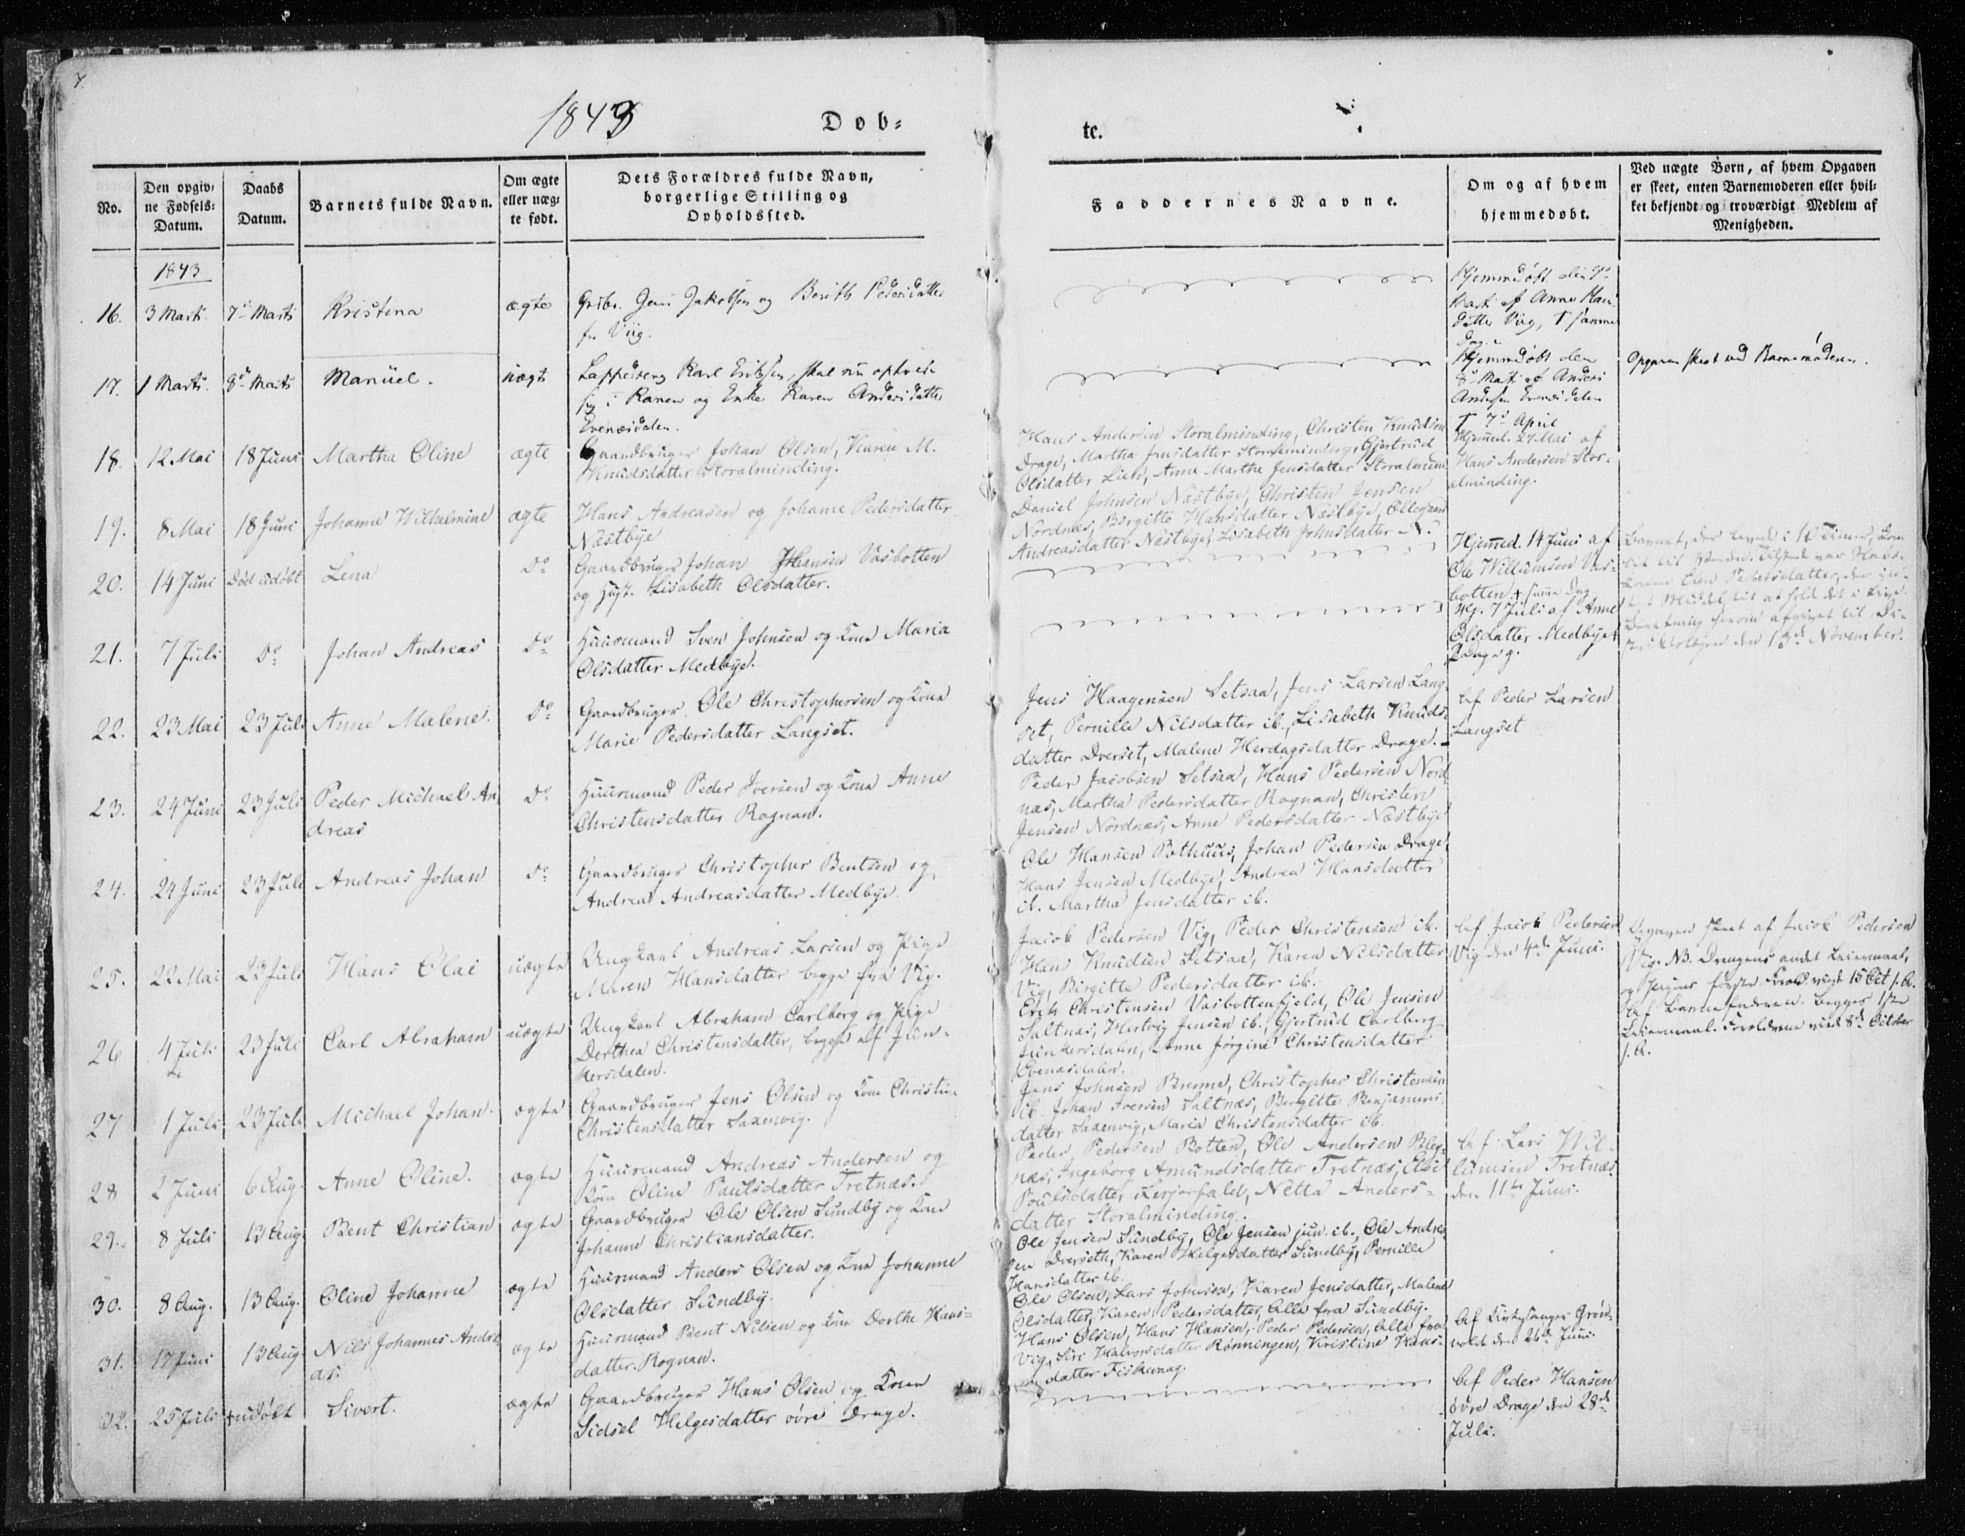 1843
Døb=
te.
No.
Den opgiv=
ne Fødsels=
Datum.
Daabs
Datum.
Barnets fulde Navn.
Om ægte
eller uæg=
te født.
Dets Forældres fulde Navn,
borgerlige Stilling og
Opholdssted.
Faddernes Navne.
Om og af hvem
hjemmedøbt.
Ved uægte Børn, af hvem Opgaven
er skeet, enten Barnemoderen eller hvil=
ket bekjendt og troværdigt Medlem af
Menigheden.
1843
16. 3 Marts 7de Marts Kristina ægte
Jens Jakobsen og Berith Pedersdatter
fr Viig.
Hjemmedøbt den 7de
Marts af Anne
datter Viig, † samme
Dag.
17. 1 Marts. 8de Marts Manüel. uægte
Karl Eriksen, skal nu opholde
sig i Ranen og Enke Karen Andersdatter
Evenesdalen.
Hjemmedøbt den
8de Marts af Anders
Andersen Evenesdalen
† 7de April
Opgaven skeet ved Barnemoderen.
18. 12 Mai 18 Juni Martha Oline ægte
Gaardbruger Johan Olsen, Karen M.
Knudsdatter Storalminding.
Hans Andersen Storalminding, Christen Knudsen
Drage, Martha Jensdatter Storalminding, Gjertrud
Olsdatter Lien, Anne Martha Jensdatter Storalmind
Hjemmed. 27 Mai af
Hans Andersen Stor=
alminding.
19. 8 Mai 18 Juni Johanne Wilhelmine ægte
Hans Andreasen og Johanne Pedersdatter
Næstbye
Daniel Johnsen Næstbye, Christen Jensen
Nordnæs, Birgitte Hansdatter Næstbye, Ellegaard
Andreasdatter Næstbye, Lisabeth Johnsdatter N.
20. 14 Juni Død udøbt Lena Do
Gaardbruger Johan Hansen Vasbotten
og Lisabeth Olsdatter.
Hjemmed. 14 Juni af
Ole Willumsen Vas=
botten † samme Dag
Barnet, der levede i 12 Timer, kom
Ellen Pedersdatter, der
Middel til at holde det i Live.
Beretning herom afgivet til
den 13de November.
21. 7 Juli Do Johan Andreas Do
Huusmand Sven Johnsen og Kone Maria
Olsdatter Medbye.
Hj. 7 Juli af Anne
Olsdatter Medbye
22. 23 Mai 23 Juli Anne Malene. Do
Gaardbruger Ole Christophersen og Kone
Marie Pedersdatter Langset.
Jens Haagensen Setsaa, Jens Larsen Lang
set, Pernille Nilsdatter ib., Lisabeth Knuds
datter Dverset, Malene Herdagsdatter Drage.
Af Peder Larsen
Langset
23. 24 Juni 23 Juli Peder Michael An
dreas Do
Huusmand Peder Iversen og Kone Anne
Christensdatter Rognan.
Peder Jacobsen Setsaa, Hans Pedersen Nord
næs, Martha Pedersdatter Rognan, Christen
Jensen Nordnæs, Anne Pedersdatter Næstbye
24. 24 Juni 23 Juli Andreas Johan Do
Gaardbruger Christopher Bentsen og
Andrea Andreasdatter Medbye.
Ole Hansen Pothuus, Johan Pedersen Drage,
Hans Jensen Medbye, Andrea Hansdatter
ib. Martha Jensdatter ib.
25. 22 Mai 23 Juli Hans Olai uægte
Ungkarl Andreas Larsen og Pige
Maren Hansdatter begge fra Vig.
Jacob Pedersen Vig, Peder Christensen ib.
Hans Knudsen Setsaa, Karen Nilsdatter
Vig, Birgitte Pedersdatter ib.
Af Jacob Pedersen
Vig den 4de Juni
Opgaven skeet af Jacob Pedersen
Vig. NB. Drengens andet Leiermaal,
og Pigens første.
26 4 Juli 23 Juli Carl Abraham uægte
Ungkarl Abraham Carlberg og Pige
Dorthea Christensdatter, begge af Jun=
kersdalen.
Erik Christensen Vasbottenfjeld, Ole Jensen
Saltnæs, Hertvig Jensen ib., Gjertrud Carlberg
Junkersdalen, Anne Jørgine Christensdatter
Evenesdalen.
Af Barnefaderen. Begges 1ste
Leiermaal. Forældrene viede 8de October
s. A.
27 1 Juli 23 Juli Michael Johan. ægte
Gaardbruger Jens Olsen og Kone Christine
Christensdatter Saxenvig.
Jens Johnsen Brenne, Christopher Christensen
ib. Johan Iversen Saltnæs, Birgitte Benjamins
datter Saxenvig, Maria Christensdatter ib.
28 2 Juni 6 Aug. Anne Oline. ægte
Huusmand Andreas Andersen og
Kone Oline Paulsdatter Tretnæs.
Peder Pedersen Botten, Ole Andersen Bleg
næs, Ingeborg Amundsdatter Tretnæs, Else
Poulsdatter, Netta Anders=
datter Storalminding.
Af Lars Wil=
lumsen Tretnæs
den 11te Juni.
29. 8 Juli 13 Aug. Bent Christian ægte
Gaardbruger Ole Olsen Sundby og Kone
Johanne Christiansdatter.
Ole Jensen Sundby, Ole Jensen jun. ib., Ole Andre
sen Dverseth, Karen Helgesdatter Sundby, Pernille
Hansdatter ib.
30. 8 Aug. 13 Aug. Oline Johanne ægte
Huusmand Anders Olsen og Kone Johanne
Olsdatter Sundby.
Ole Olsen, Lars Johnsen, Karen Jensdatter, Malene
Olsdatter, Karen Pedersdatter, Alle fra Sundby.
31. 17 Juni 13 Aug. Nils Johannes Andre
as. ægte
Huusmand Bent Nilsen og Kone Dorthe Hans=
datter Rognan.
Hans Olsen, Hans Hansen, Peder Pedersen, Alle fra
Vig, Siri Halvorsdatter Rønningen, Kristine Hans=
datter Fiskevaag.
Af Kirkesanger Grøn
vold den 26de Juni.
32. 25 Juli † udøbt Sivert. ægte
Gaardbruger Hans Olsen og Kone
Sidsel Helgesdatter øvre Drage.
Af Peder Hansen
øvre Drage den 28de
Juli.